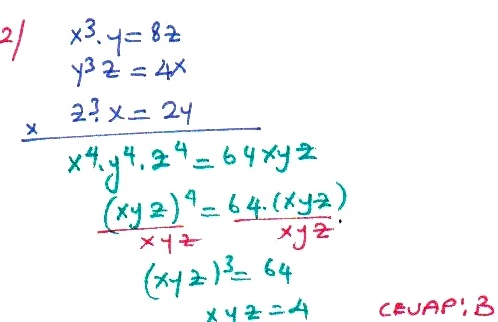 2) x³.y = 8z
y³z = 4x
x z³.x = 2y
x⁴.y⁴.z⁴ = 64xyz
(xyz)⁴ = 64.(xyz)
xyz xyz
(xyz)³ = 64
xyz = 4
CEVAP: B